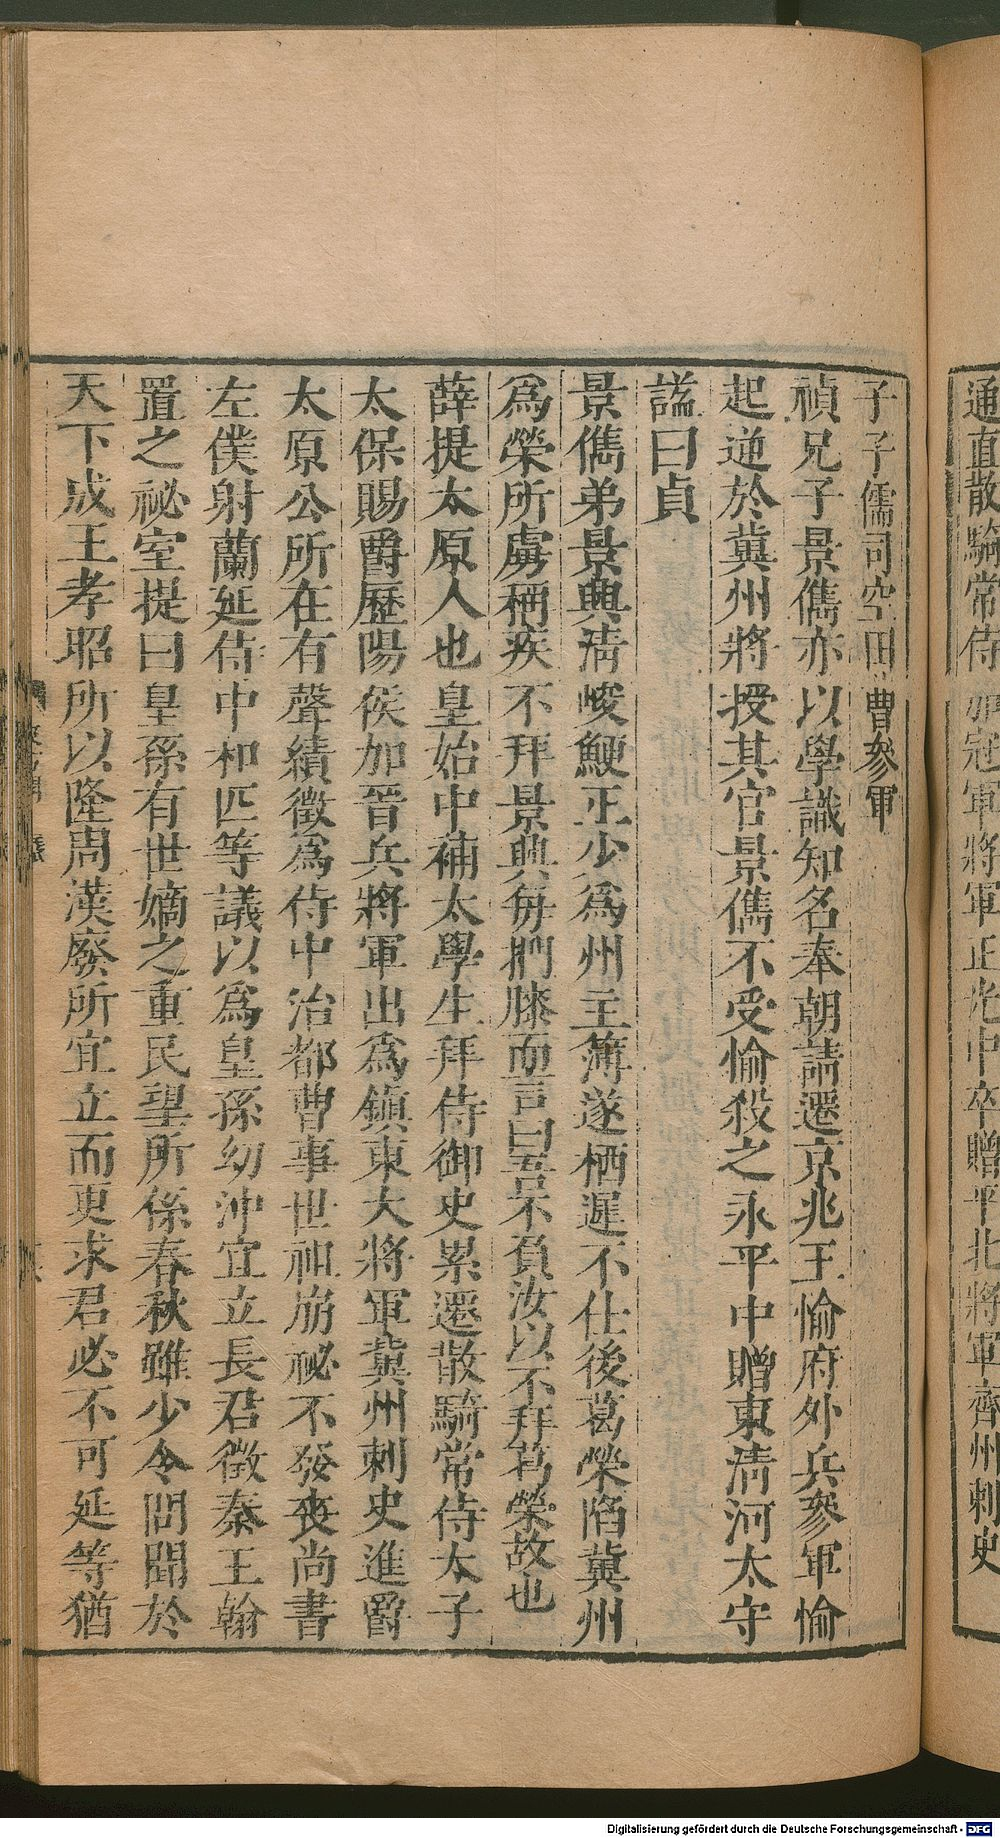 通直散騎常侍加冠軍將軍正光中卒贈平北將軍齊州刺史
子子儒司空田曹參軍
禎兄子景儁亦以學識知名奉朝請遷京兆王愉府外兵參軍愉
起逆於冀州將授其官景儁不受愉殺之永平中贈東清河太守
諡曰貞
景儁弟景興清峻鯁正少爲州主簿遂栖遲不仕後葛榮陷冀州
爲榮所虜稱疾不拜景興每捫膝而言曰吾不負汝以不拜葛榮故也
薛提太原人也皇始中補太學生拜侍御史累遷散騎常侍太子
太保賜爵歷陽侯加晉兵將軍出爲鎮東大將軍冀州刺史進爵
太原公所在有聲績徵爲侍中治都曹事世祖崩祕不發喪尚書
左僕射蘭延侍中和匹等議以爲皇孫幼沖宜立長君徵秦王翰
置之祕室提曰皇孫有世嫡之重民望所係春秋雖少令問聞於
天下成王孝昭所以隆周漢廢所宜立而更求君必不可延等猶
Digitalisierung gefördert durch die Deutsche Forschungsgemeinschaft - DFG